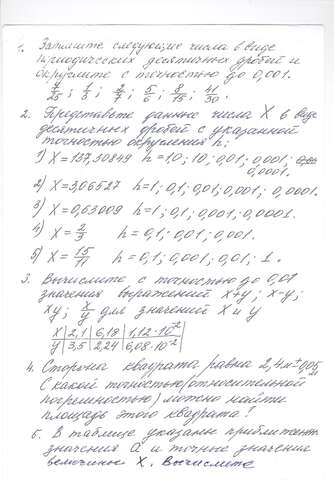 1. Запишите следующие числа в виде
периодических десятичных дробей и
округлите с точностью до 0,001.
7/25; 1/3; 2/7; 5/6; 8/15; 41/30.
2. Представьте данные числа X в виде
десятичных дробей с указанной
точностью округления h:
1) X=157,30849 h=10; 10; 0,01; 0,001;
0,0001.
2) X=3,06527 h=1; 0,1; 0,01; 0,001; 0,0001.
3) X=0,63009 h=1; 0,1; 0,001; 0,0001.
4) X=2/3 h=0,1; 0,01; 0,001.
5) X=15/11 h=0,1; 0,001; 0,01; 1.
3. Вычислите с точностью до 0,01
значения выражений X+y; X-y;
Xy; X/y для значений X и y
X 2,1 6,18 1,12·10⁻²
y 3,5 2,24 6,08·10⁻²
4. Сторона квадрата равна 2,4м±0,05
С какой точностью (относительной
погрешностью) можно найти
площадь этого квадрата?
5. В таблице указаны
значения a и точные значения
величины X. Вычислите